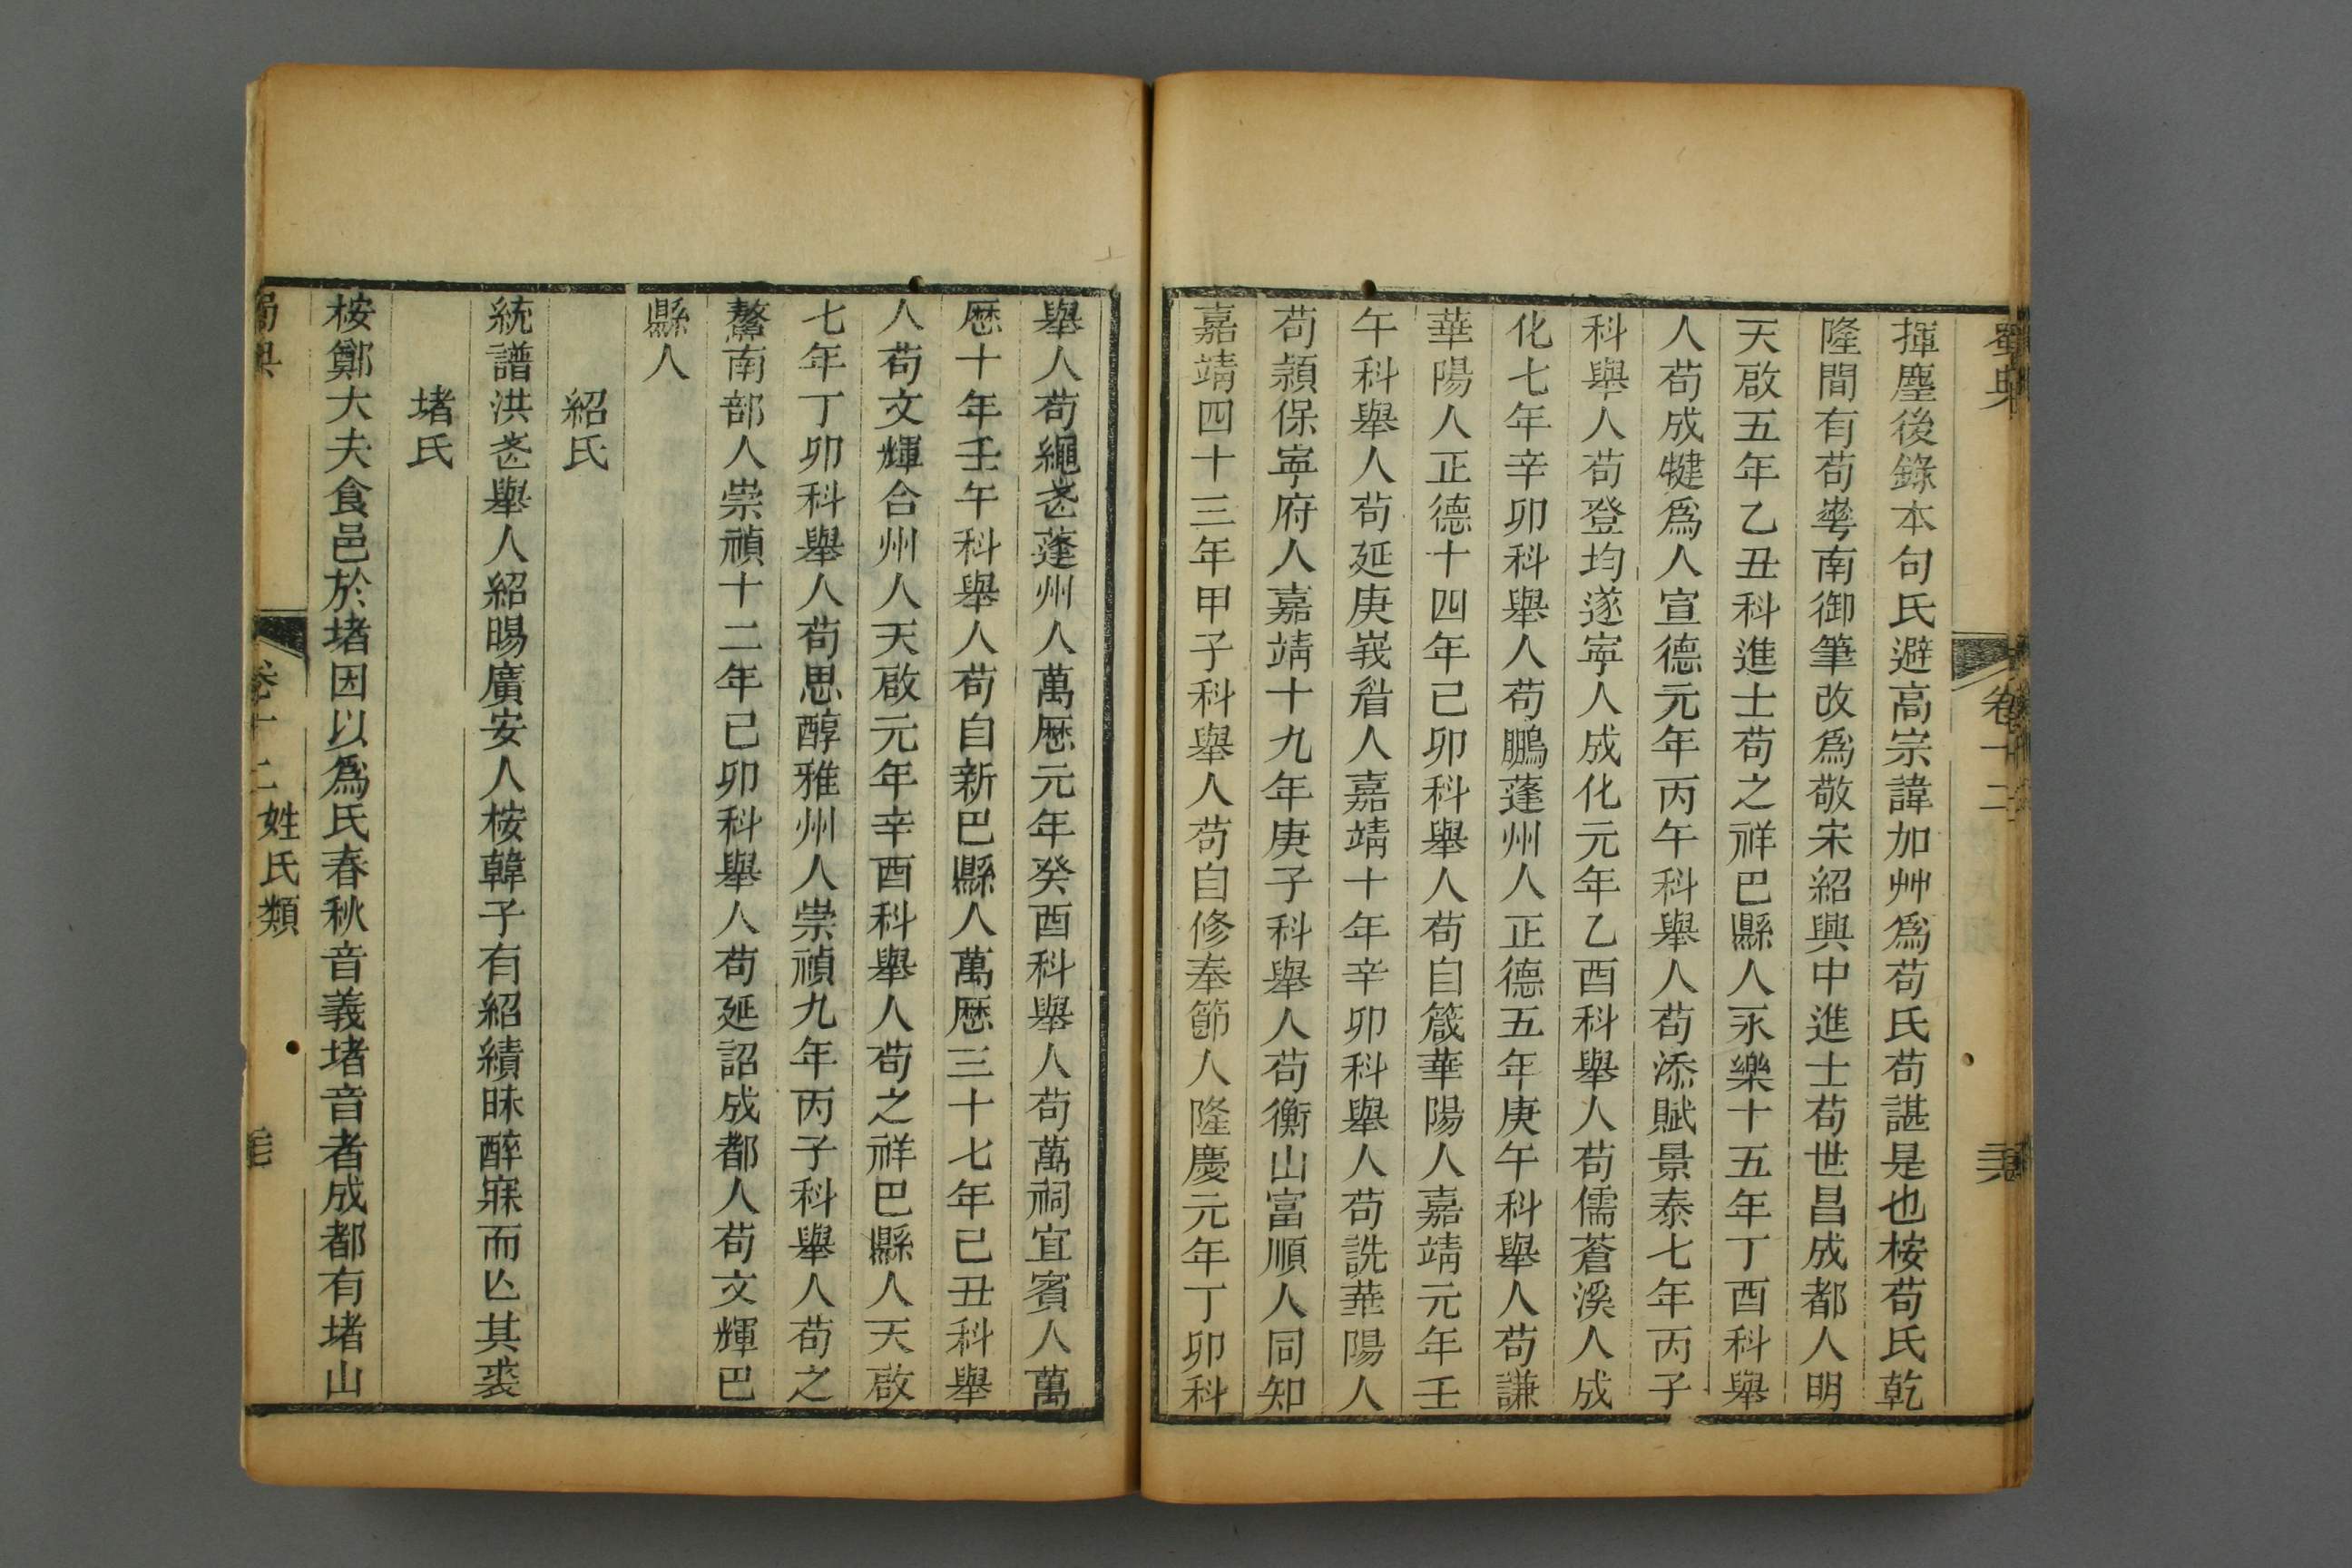 蜀典
卷十二
揮塵後錄本句氏避高宗諱加艸爲苟氏苟諶是也桉苟氏乾
隆間有苟華南御筆改爲敬宋紹興中進士苟世昌成都人明
天啟五年乙丑科進士苟之祥巴縣人永樂十五年丁酉科舉
人苟成犍爲人宣德元年丙午科舉人苟添賦景泰七年丙子
科舉人苟登均遂寧人成化元年乙酉科舉人苟儒蒼溪人成
化七年辛卯科舉人苟鵬蓬州人正德五年庚午科舉人苟謙
華陽人正德十四年己卯科舉人苟自箴華陽人嘉靖元年壬
午科舉人苟延庚峩眉人嘉靖十年辛卯科舉人苟詵華陽人
苟潁保寧府人嘉靖十九年庚子科舉人苟衡山富順人同知
嘉靖四十三年甲子科舉人苟自修奉節人隆慶元年丁卯科
舉人苟繩惎蓬州人萬歷元年癸酉科舉人苟萬祠宜賓人萬
歷十年壬午科舉人苟自新巴縣人萬歷三十七年己丑科舉
人苟文輝合州人天啟元年辛酉科舉人苟之祥巴縣人天啟
七年丁卯科舉人苟思醇雅州人崇禎九年丙子科舉人苟之
鰲南部人崇禎十二年己卯科舉人苟延詔成都人苟文輝巴
縣人
紹氏
統譜洪惎舉人紹暘廣安人桉韓子有紹績昧醉寐而亾其裘
堵氏
桉鄭大夫食邑於堵因以爲氏春秋音義堵音者成都有堵山
蜀典
卷十二
姓氏類